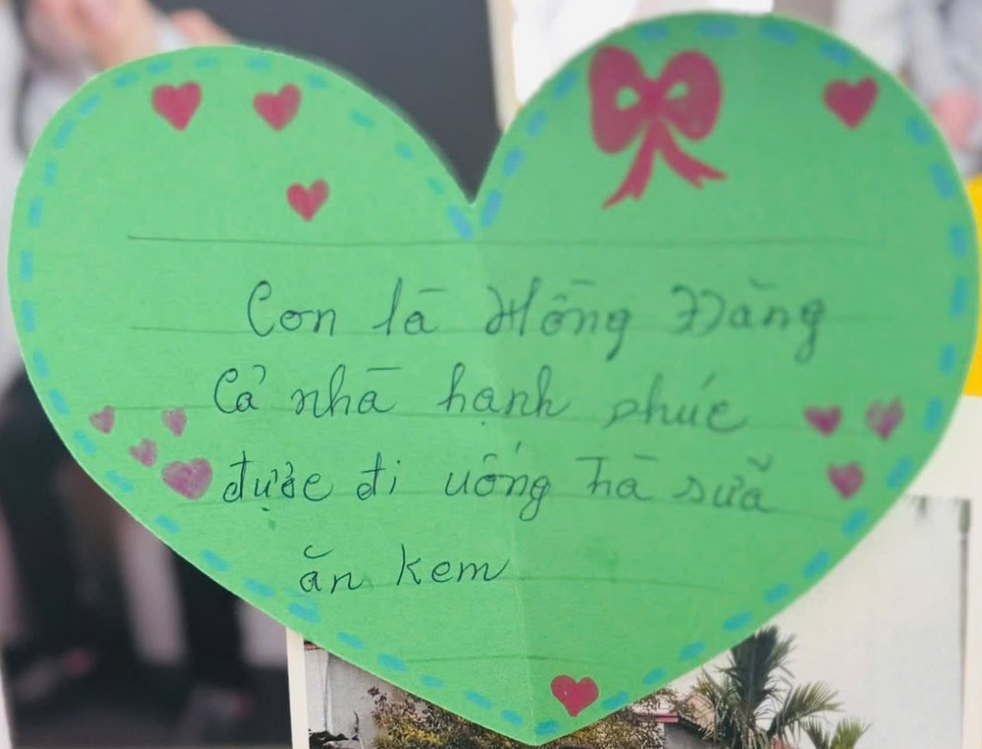 Con là Hồng Đăng
Cả nhà hạnh phúc
được đi uống Tà sữa
ăn kem